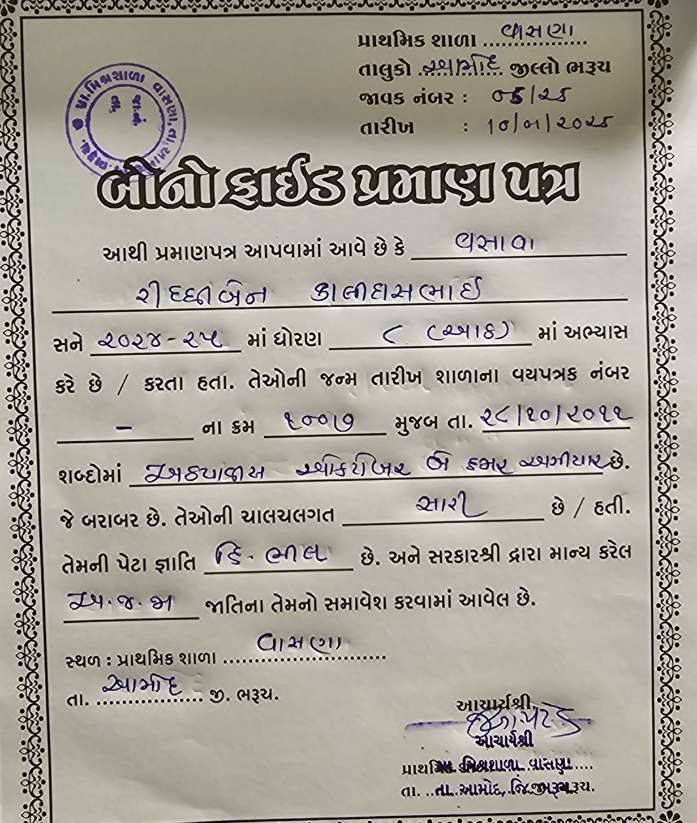 પ્રાથમિક શાળા વાસણા
તાલુકો આમોદ જીલ્લો ભરૂચ
જાવક નંબર : ૦૬/૨૬
તારીખ : ૧૦/૧/૨૦૨૬
પ્રા.મિશ્રશાળા વાસણા.તા.
જા.નં.
તા.
બોનો ફાઈડ પ્રમાણ પત્ર
આથી પ્રમાણપત્ર આપવામાં આવે છે કે વસાવા
રીધ્ધીબેન કાલીદાસભાઈ
સને ૨૦૨૪-૨૫ માં ધોરણ ૮ (આઠ) માં અભ્યાસ
કરે છે / કરતા હતા. તેઓની જન્મ તારીખ શાળાના વયપત્રક નંબર
- ના ક્રમ ૧૦૦૭ મુજબ તા. ૨૮/૧૦/૨૦૧૧
શબ્દોમાં અઠયાવીસ ઓકટોબર બે હજાર અગીયાર છે.
જે બરાબર છે. તેઓની ચાલચલગત સારી છે / હતી.
તેમની પેટા જ્ઞાતિ હિ. ભીલ છે. અને સરકારશ્રી દ્વારા માન્ય કરેલ
અ.જ.જા જાતિના તેમનો સમાવેશ કરવામાં આવેલ છે.
સ્થળ : પ્રાથમિક શાળા વાસણા
તા. આમોદ જી. ભરૂચ.
આચાર્યશ્રી
આચાર્યશ્રી
પ્રાથમિક મિશ્રશાળા વાસણા
તા. તા. આમોદ, જિ. ભરૂચ.